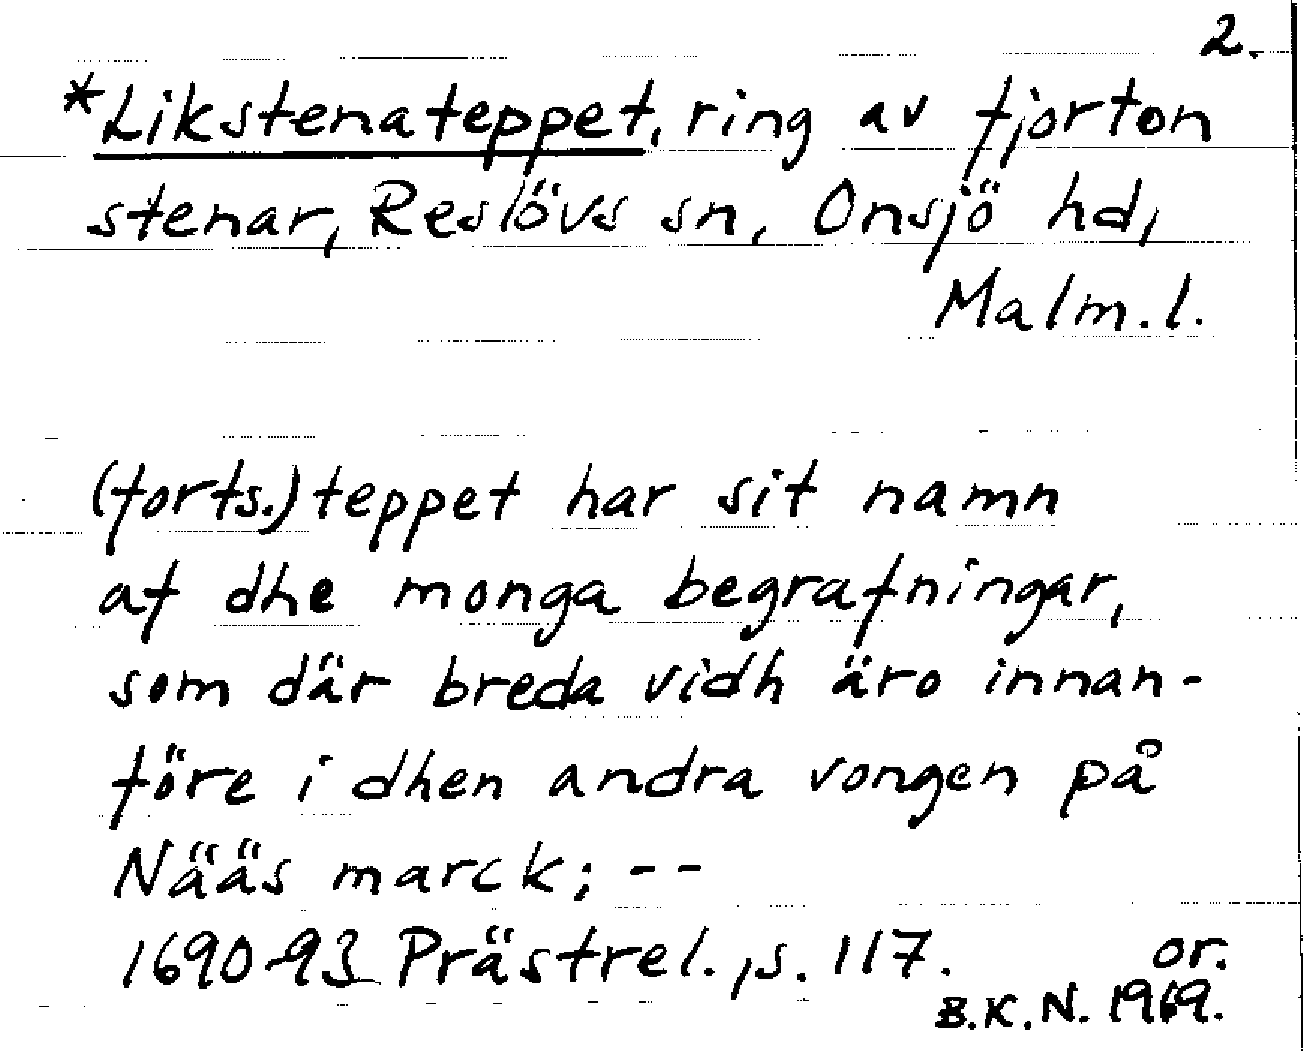 2.
*Likstenateppet, ring av fjorton
stenar, Reslövs sn, Onsjö hd,
Malm.l.
(forts.) teppet har sit namn
af dhe monga begrafningar,
som där breda vidh äro innan-
före i dhen andra vongen på
Nääs marck; --
1690-93 Prästrel., s. 117. or.
B.K.N. 1969.